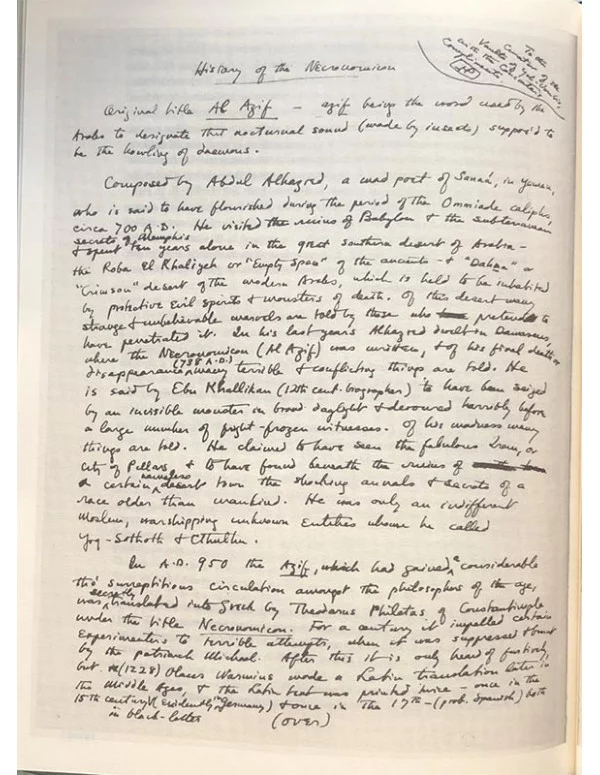 To the
Curator of the
Vaults of Yoh-Vombis,
with the Concocter's
Compliments
History of the Necronomicon
Original title Al Azif — azif being the word used by the
Arabs to designate that nocturnal sound (made by insects) suppos'd to
be the howling of daemons.
Composed by Abdul Alhazred, a mad poet of Sanaá, in Yemen,
who is said to have flourished during the period of the Ommiade caliphs,
circa 700 A.D. He visited the ruins of Babylon & the subterranean
secrets of Memphis
& spent ten years alone in the great southern desert of Arabia —
the Roba El Khaliyeh or "Empty Space" of the ancients — & "Dahna" or
"Crimson" desert of the modern Arabs, which is held to be inhabited
by protective evil spirits & monsters of death. Of this desert many
strange & unbelievable marvels are told by those who pretend to
have penetrated it. In his last years Alhazred dwelt in Damascus,
where the Necronomicon (Al Azif) was written, & of his final death or
disappearance (738 A.D.) many terrible & conflicting things are told. He
is said by Ebn Khallikan (12th cent. biographer) to have been seized
by an invisible monster in broad daylight & devoured horribly before
a large number of fright-frozen witnesses. Of his madness many
things are told. He claimed to have seen the fabulous Irem, or
City of Pillars, & to have found beneath the ruins of
a certain nameless desert town the shocking annals & secrets of a
race older than mankind. He was only an indifferent
Moslem, worshipping unknown Entities whom he called
Yog-Sothoth & Cthulhu.
In A.D. 950 the Azif, which had gained a considerable
tho' surreptitious circulation amongst the philosophers of the age,
was secretly translated into Greek by Theodorus Philetas of Constantinople
under the title Necronomicon. For a century it impelled certain
experimenters to terrible attempts, when it was suppressed & burnt
by the patriarch Michael. After this it is only heard of furtively,
but (1228) Olaus Wormius made a Latin translation later in
the Middle Ages, & the Latin text was printed twice — once in the
15th century (evidently in Germany) & once in the 17th — (prob. Spanish) both
in black-letter
(over)